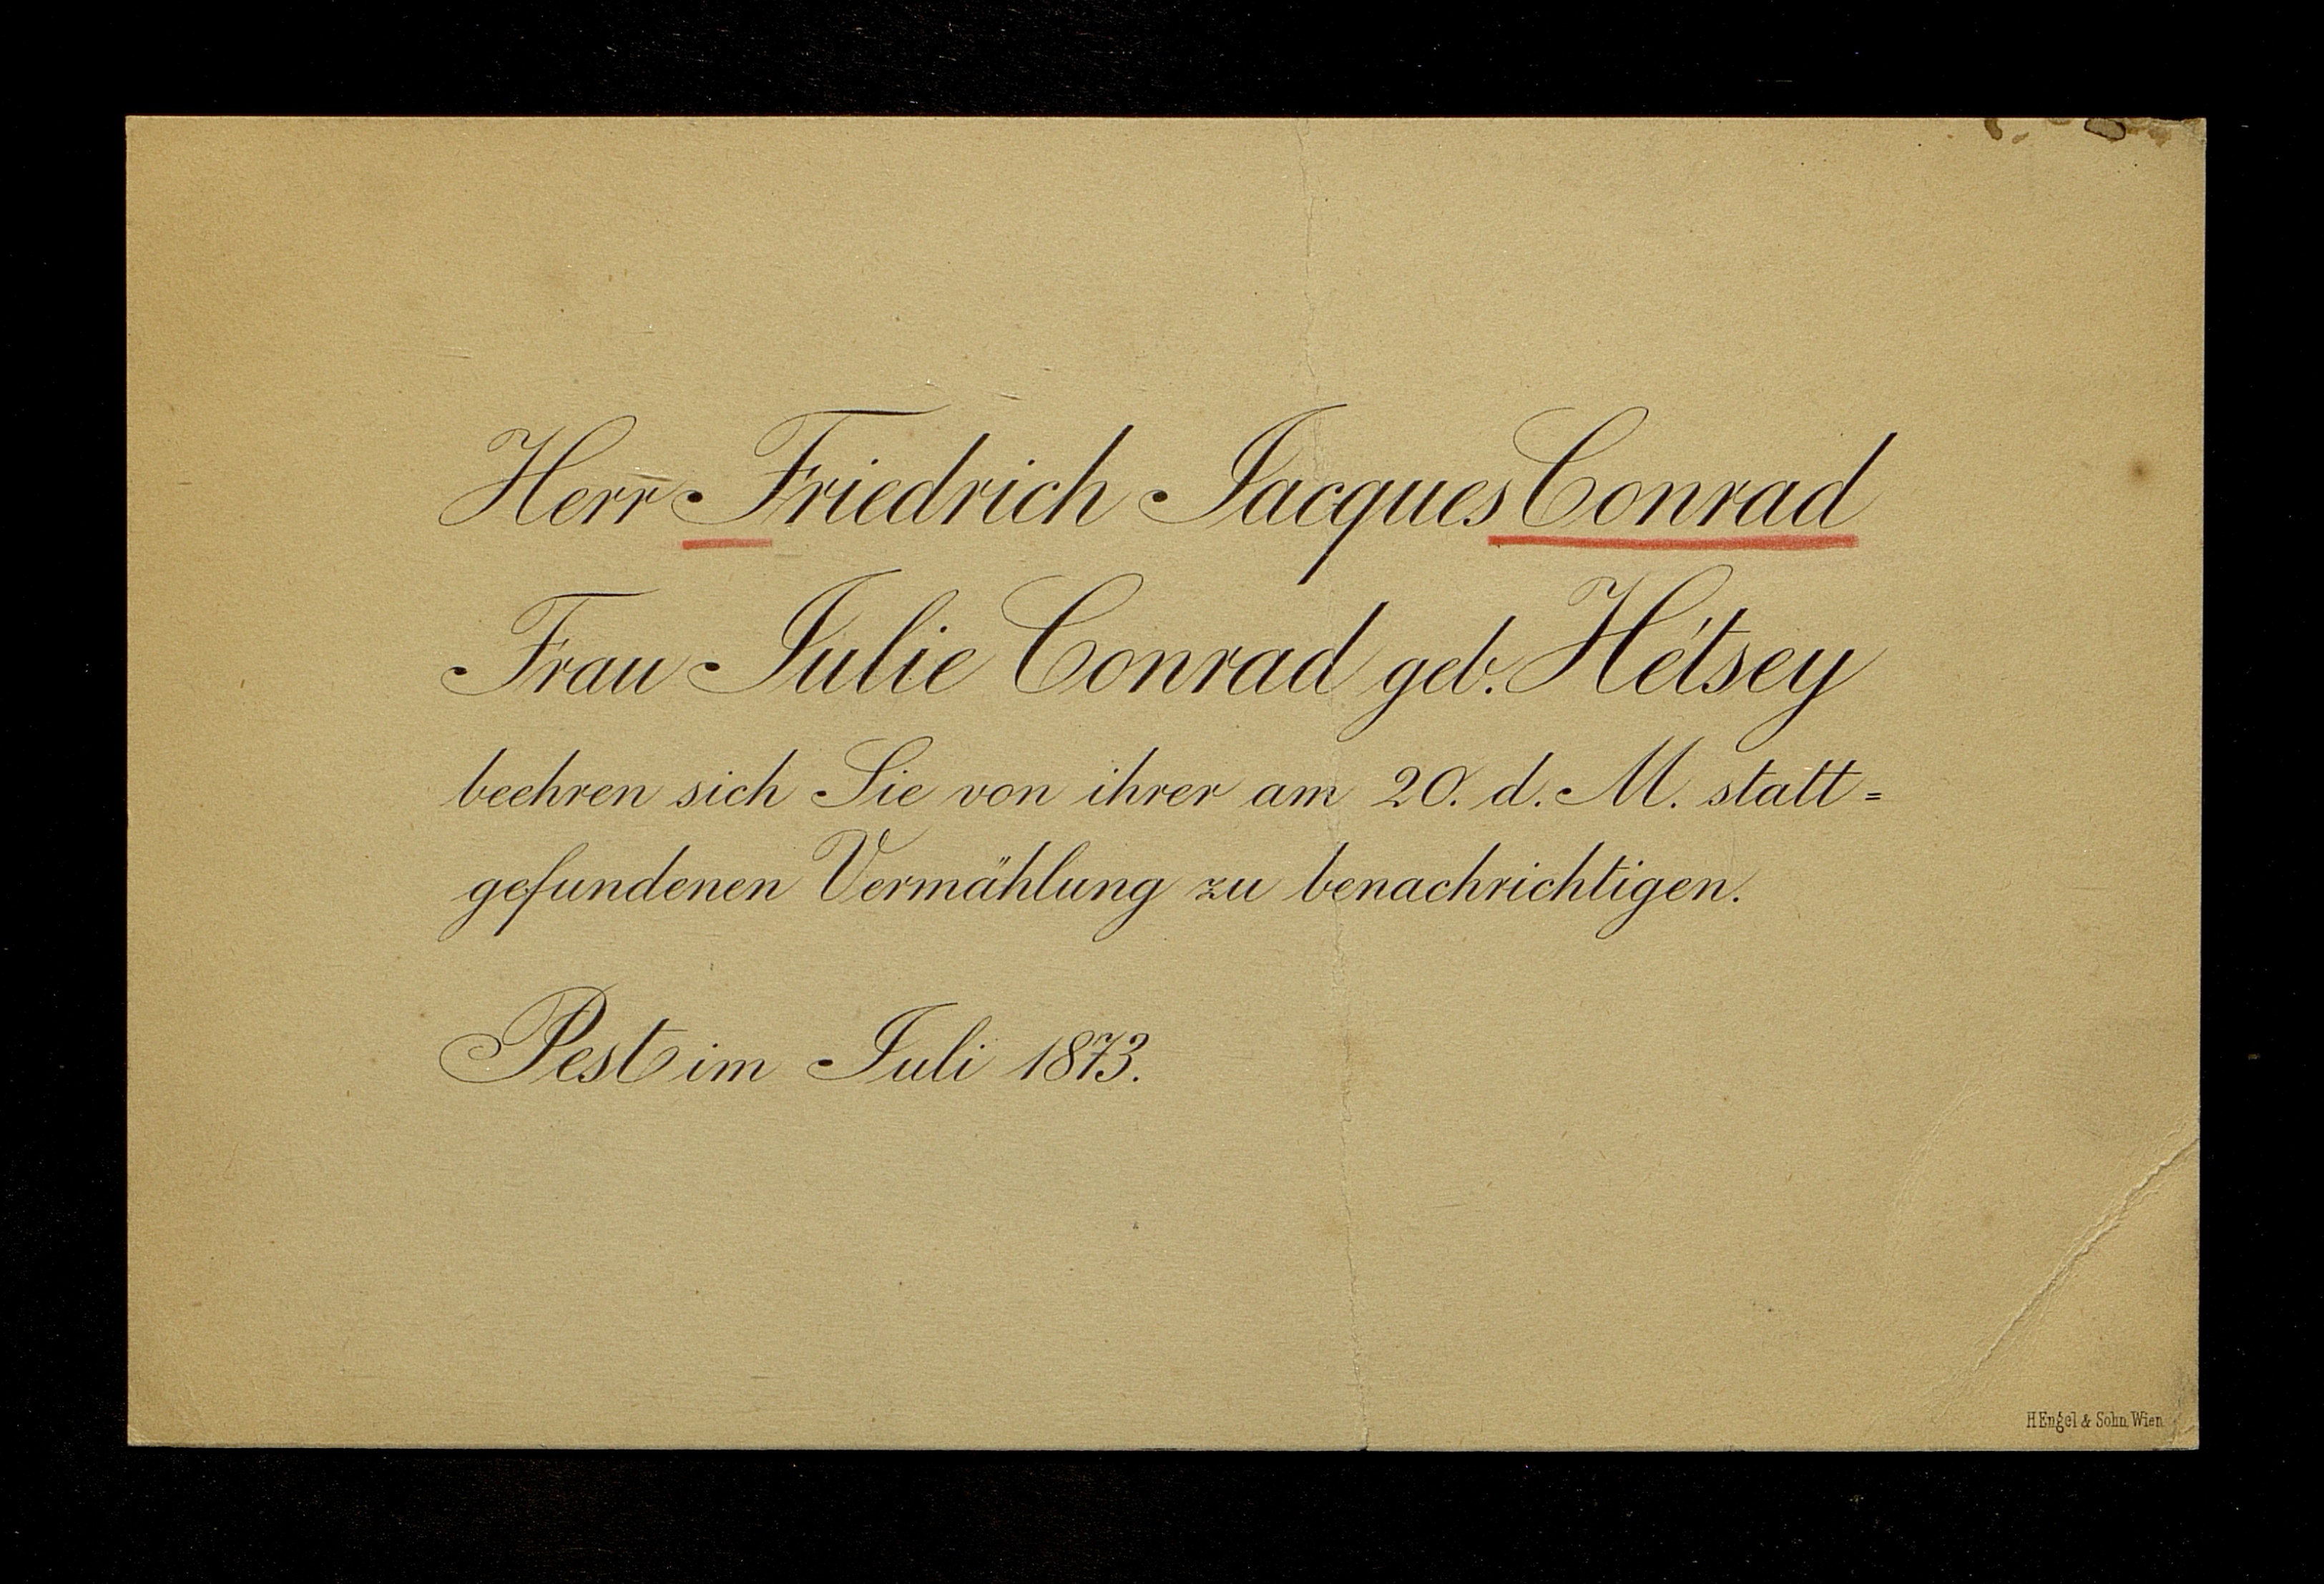 Herr Friedrich Jacques Conrad
Frau Julie Conrad geb. Hétsey
beehren sich Sie von ihrer am 20. d. M. statt=
gefundenen Vermählung zu benachrichtigen.
Pest im Juli 1873.
H Engel & Sohn, Wien